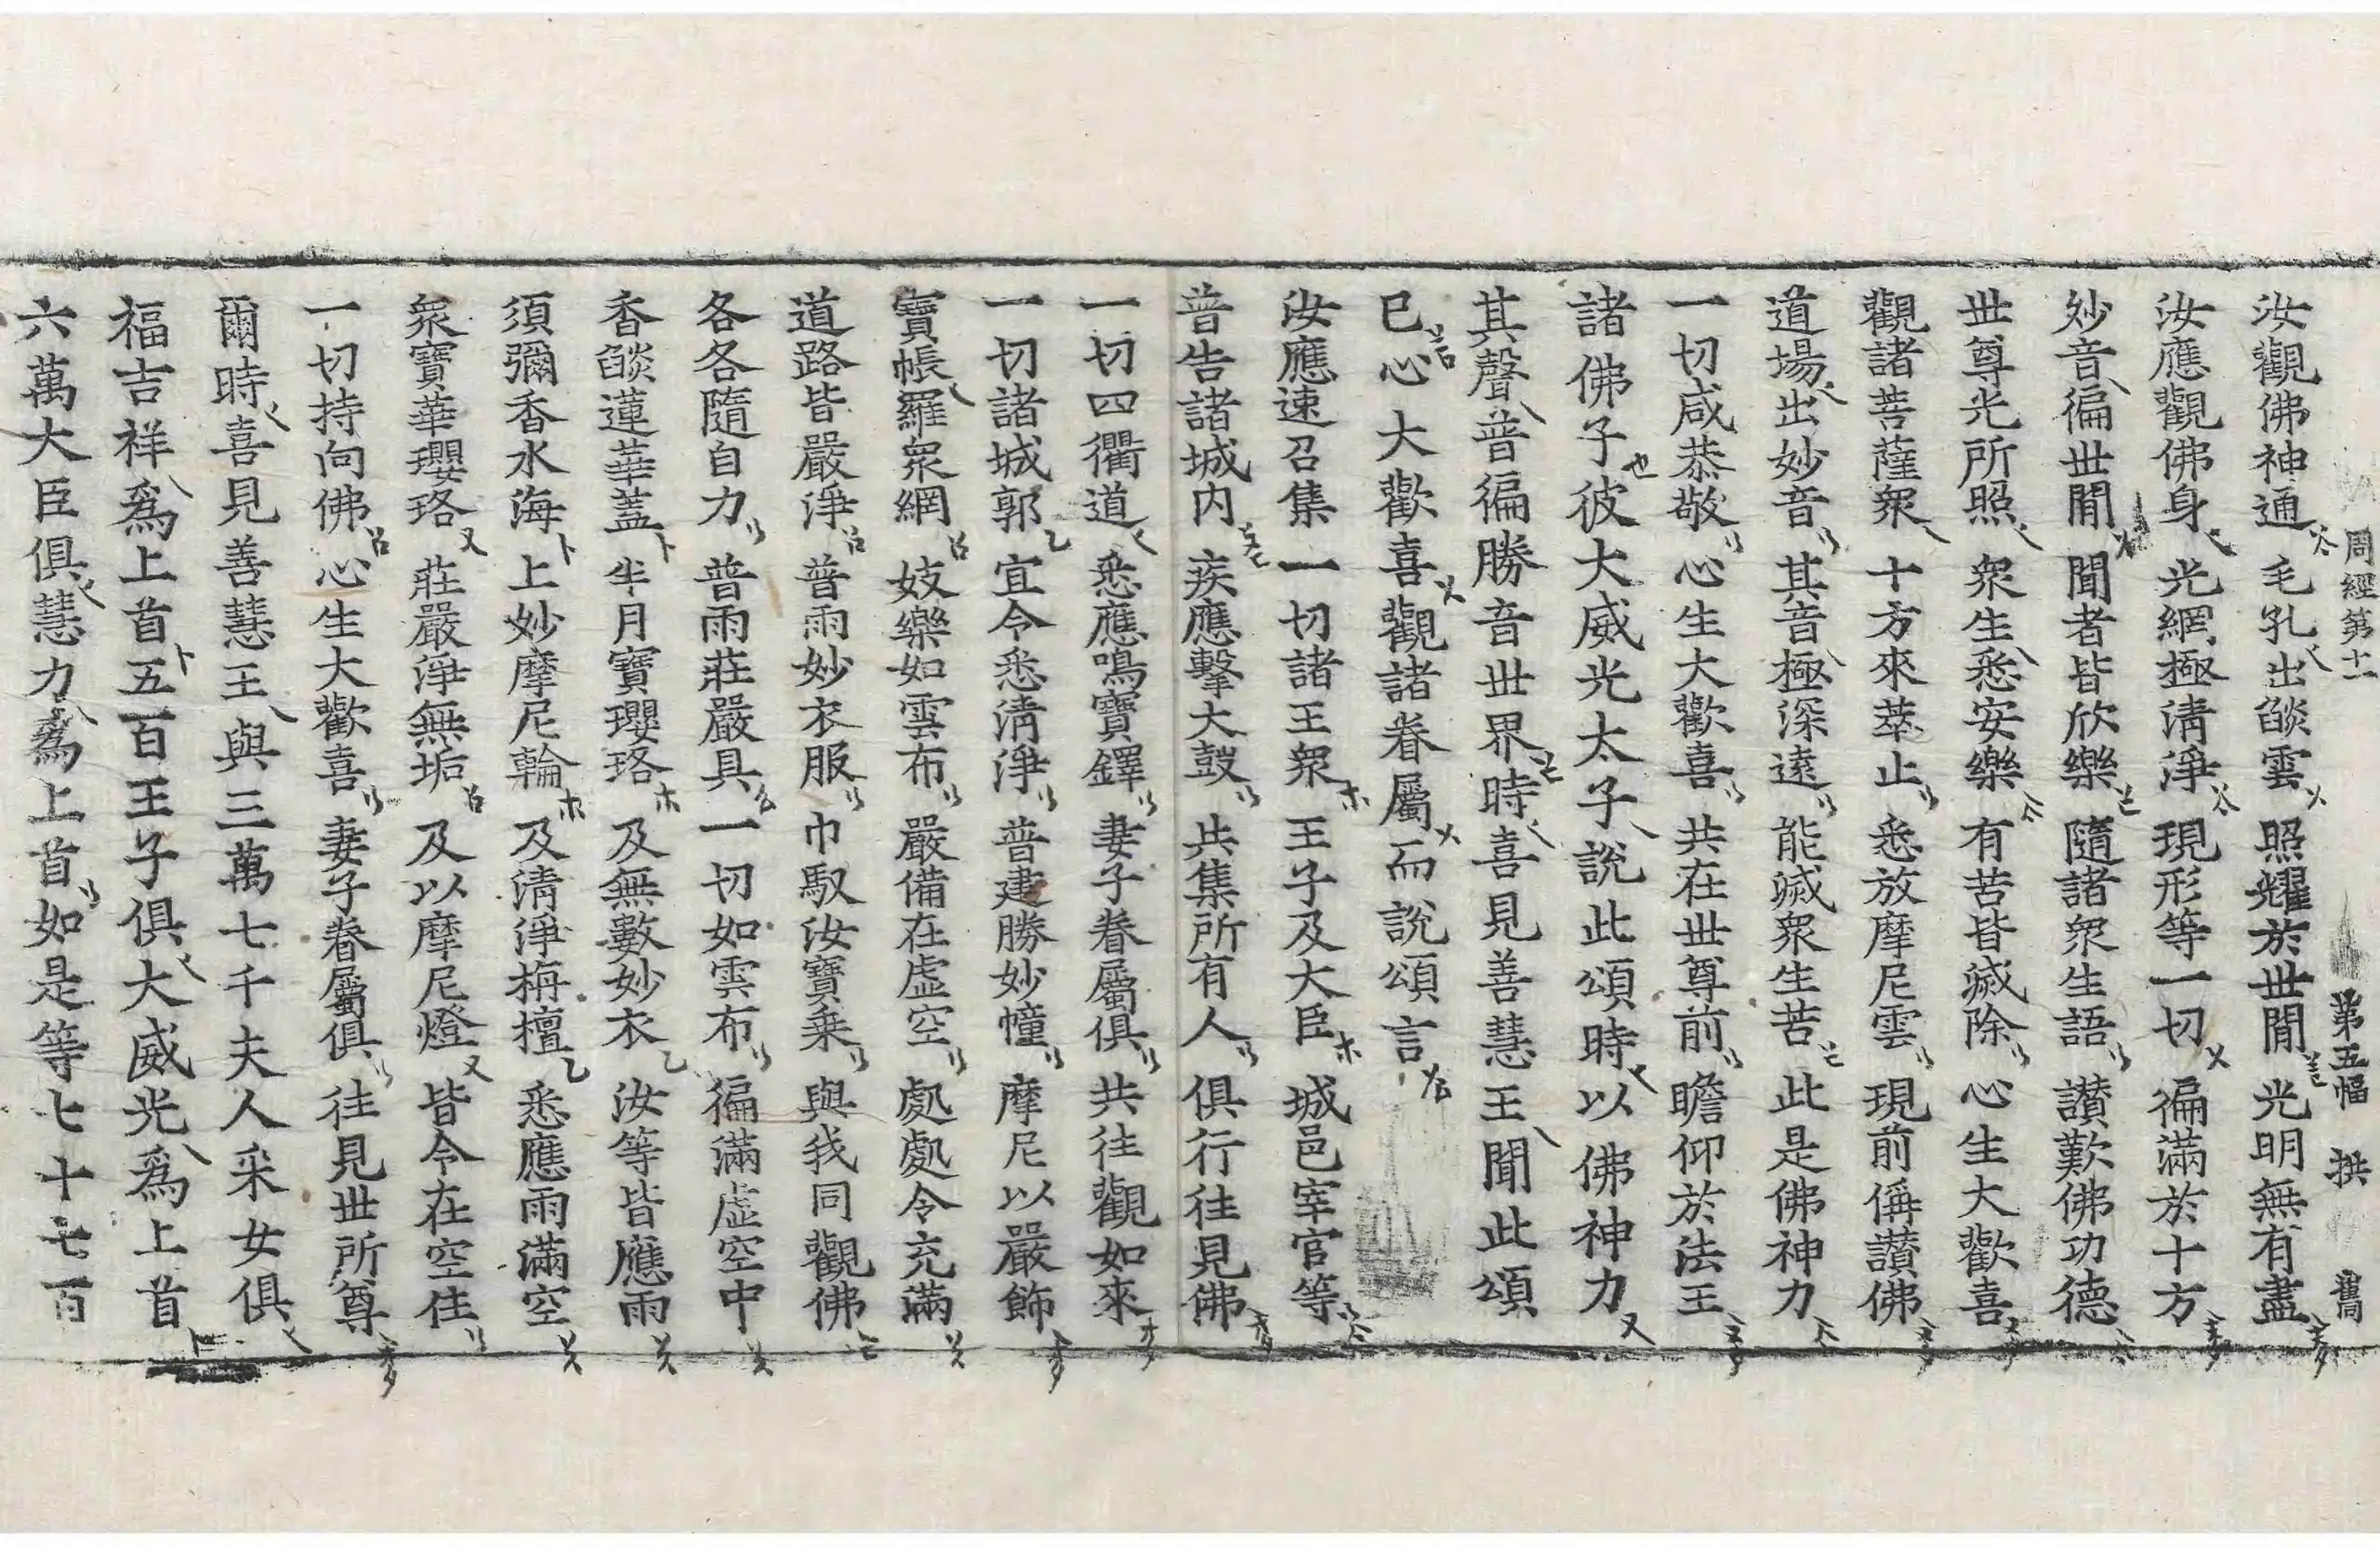 周經第十一 第五幅 拱 舊
汝觀佛神通 毛孔出燄雲 照耀於世間 光明無有盡
汝應觀佛身 光網極清淨 現形等一切 徧滿於十方
妙音徧世間 聞者皆欣樂 隨諸衆生語 讃歎佛功德
世尊光所照 衆生悉安樂 有苦皆滅除 心生大歡喜
觀諸菩薩衆 十方來萃止 悉放摩尼雲 現前偁讃佛
道場出妙音 其音極深遠 能滅衆生苦 此是佛神力
一切咸恭敬 心生大歡喜 共在世尊前 瞻仰於法王
諸佛子彼大威光太子說此頌時以佛神力
其聲普徧勝音世界時喜見善慧王聞此頌
已心大歡喜觀諸眷屬而說頌言
汝應速召集 一切諸王衆 王子及大臣 城邑宰官等
普告諸城内 疾應擊大鼓 共集所有人 俱行往見佛
一切四衢道 悉應鳴寶鐸 妻子眷屬俱 共往觀如來
一切諸城郭 宜令悉清淨 普建勝妙幢 摩尼以嚴飾
寶帳羅衆網 妓樂如雲布 嚴備在虛空 處處令充滿
道路皆嚴淨 普雨妙衣服 巾馭汝寶乗 與我同觀佛
各各隨自力 普雨莊嚴具 一切如雲布 徧滿虛空中
香燄蓮華蓋 半月寶瓔珞 及無數妙衣 汝等皆應雨
須彌香水海 上妙摩尼輪 及清淨栴檀 悉應雨滿空
衆寶華瓔珞 莊嚴淨無垢 及以摩尼燈 皆令在空住
一切持向佛 心生大歡喜 妻子眷屬俱 往見世所尊
爾時喜見善慧王與三萬七千夫人采女俱
福吉祥爲上首五百王子俱大威光爲上首
六萬大臣俱慧力爲上首如是等七十七百